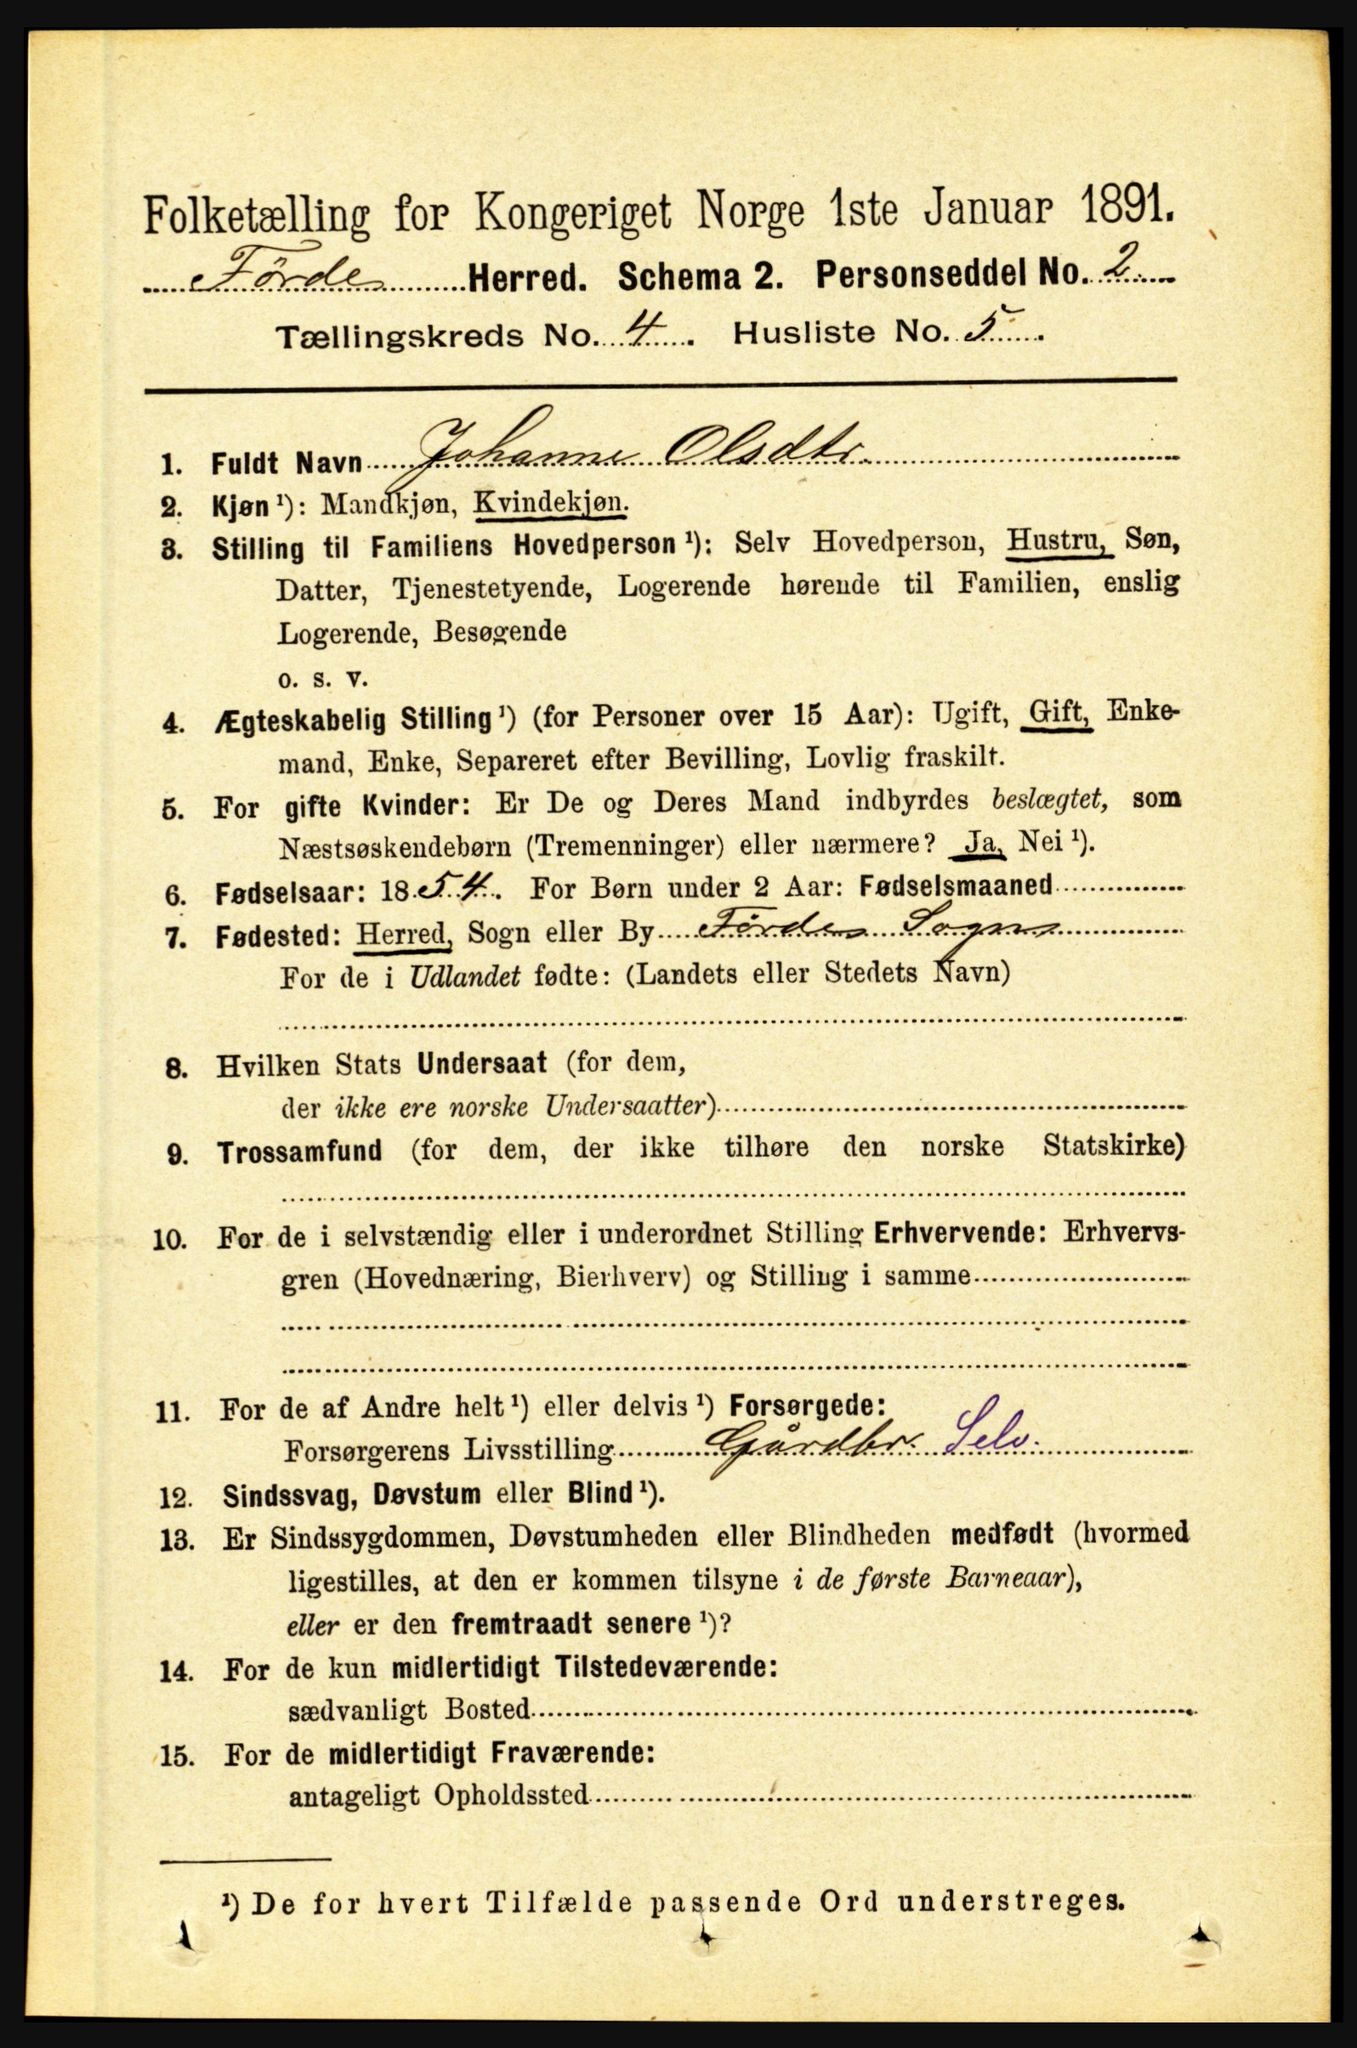 Folketælling for Kongeriget Norge 1ste Januar 1891.
Førde Herred. Schema 2. Personseddel No. 2.
Tællingskreds No. 4. Husliste No. 5.
1. Fuldt Navn Johanne Olsdtr.
2. Kjøn ¹): Mandkjøn, Kvindekjøn.
3. Stilling til Familiens Hovedperson ¹): Selv Hovedperson, Hustru, Søn,
Datter, Tjenestetyende, Logerende hørende til Familien, enslig
Logerende, Besøgende
o. s. v.
4. Ægteskabelig Stilling ¹) (for Personer over 15 Aar): Ugift, Gift, Enke-
mand, Enke, Separeret efter Bevilling, Lovlig fraskilt.
5. For gifte Kvinder: Er De og Deres Mand indbyrdes beslægtet, som
Næstsøskendebørn (Tremenninger) eller nærmere? Ja, Nei ¹).
6. Fødselsaar: 1854. For Børn under 2 Aar: Fødselsmaaned
7. Fødested: Herred, Sogn eller By Førde Sogn
For de i Udlandet fødte: (Landets eller Stedets Navn)
8. Hvilken Stats Undersaat (for dem,
der ikke ere norske Undersaatter)
9. Trossamfund (for dem, der ikke tilhøre den norske Statskirke)
10. For de i selvstændig eller i underordnet Stilling Erhvervende: Erhvervs-
gren (Hovednæring, Bierhverv) og Stilling i samme
11. For de af Andre helt ¹) eller delvis ¹) Forsørgede:
Forsørgerens Livsstilling Gårdbr. Selv.
12. Sindssvag, Døvstum eller Blind ¹).
13. Er Sindssygdommen, Døvstumheden eller Blindheden medfødt (hvormed
ligestilles, at den er kommen tilsyne i de første Barneaar),
eller er den fremtraadt senere ¹)?
14. For de kun midlertidigt Tilstedeværende:
sædvanligt Bosted
15. For de midlertidigt Fraværende:
antageligt Opholdssted
¹) De for hvert Tilfælde passende Ord understreges.